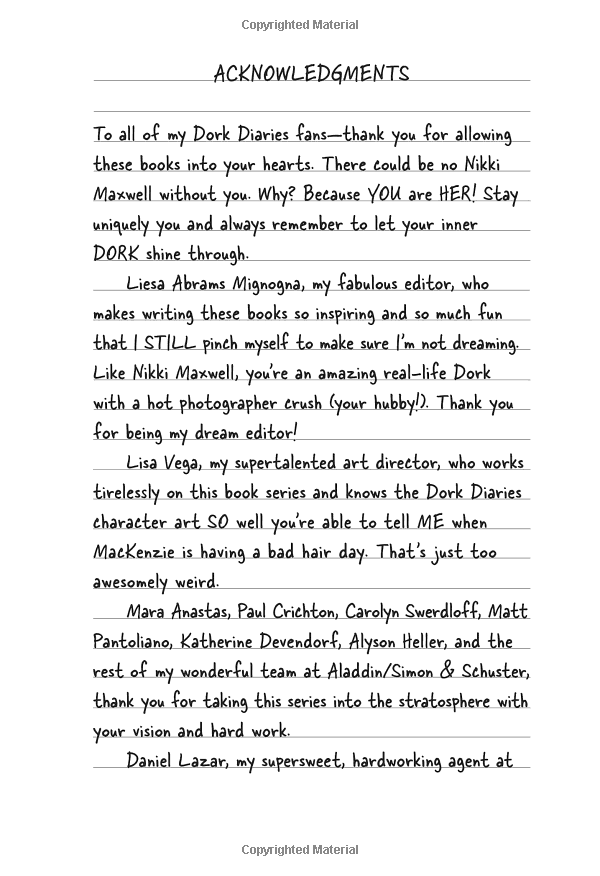 Copyrighted Material
ACKNOWLEDGMENTS
To all of my Dork Diaries fans—thank you for allowing
these books into your hearts. There could be no Nikki
Maxwell without you. Why? Because YOU are HER! Stay
uniquely you and always remember to let your inner
DORK shine through.
Liesa Abrams Mignogna, my fabulous editor, who
makes writing these books so inspiring and so much fun
that I STILL pinch myself to make sure I'm not dreaming.
Like Nikki Maxwell, you're an amazing real-life Dork
with a hot photographer crush (your hubby!). Thank you
for being my dream editor!
Lisa Vega, my supertalented art director, who works
tirelessly on this book series and knows the Dork Diaries
character art SO well you're able to tell ME when
MacKenzie is having a bad hair day. That's just too
awesomely weird.
Mara Anastas, Paul Crichton, Carolyn Swerdloff, Matt
Pantoliano, Katherine Devendorf, Alyson Heller, and the
rest of my wonderful team at Aladdin/Simon & Schuster,
thank you for taking this series into the stratosphere with
your vision and hard work.
Daniel Lazar, my supersweet, hardworking agent at
Copyrighted Material